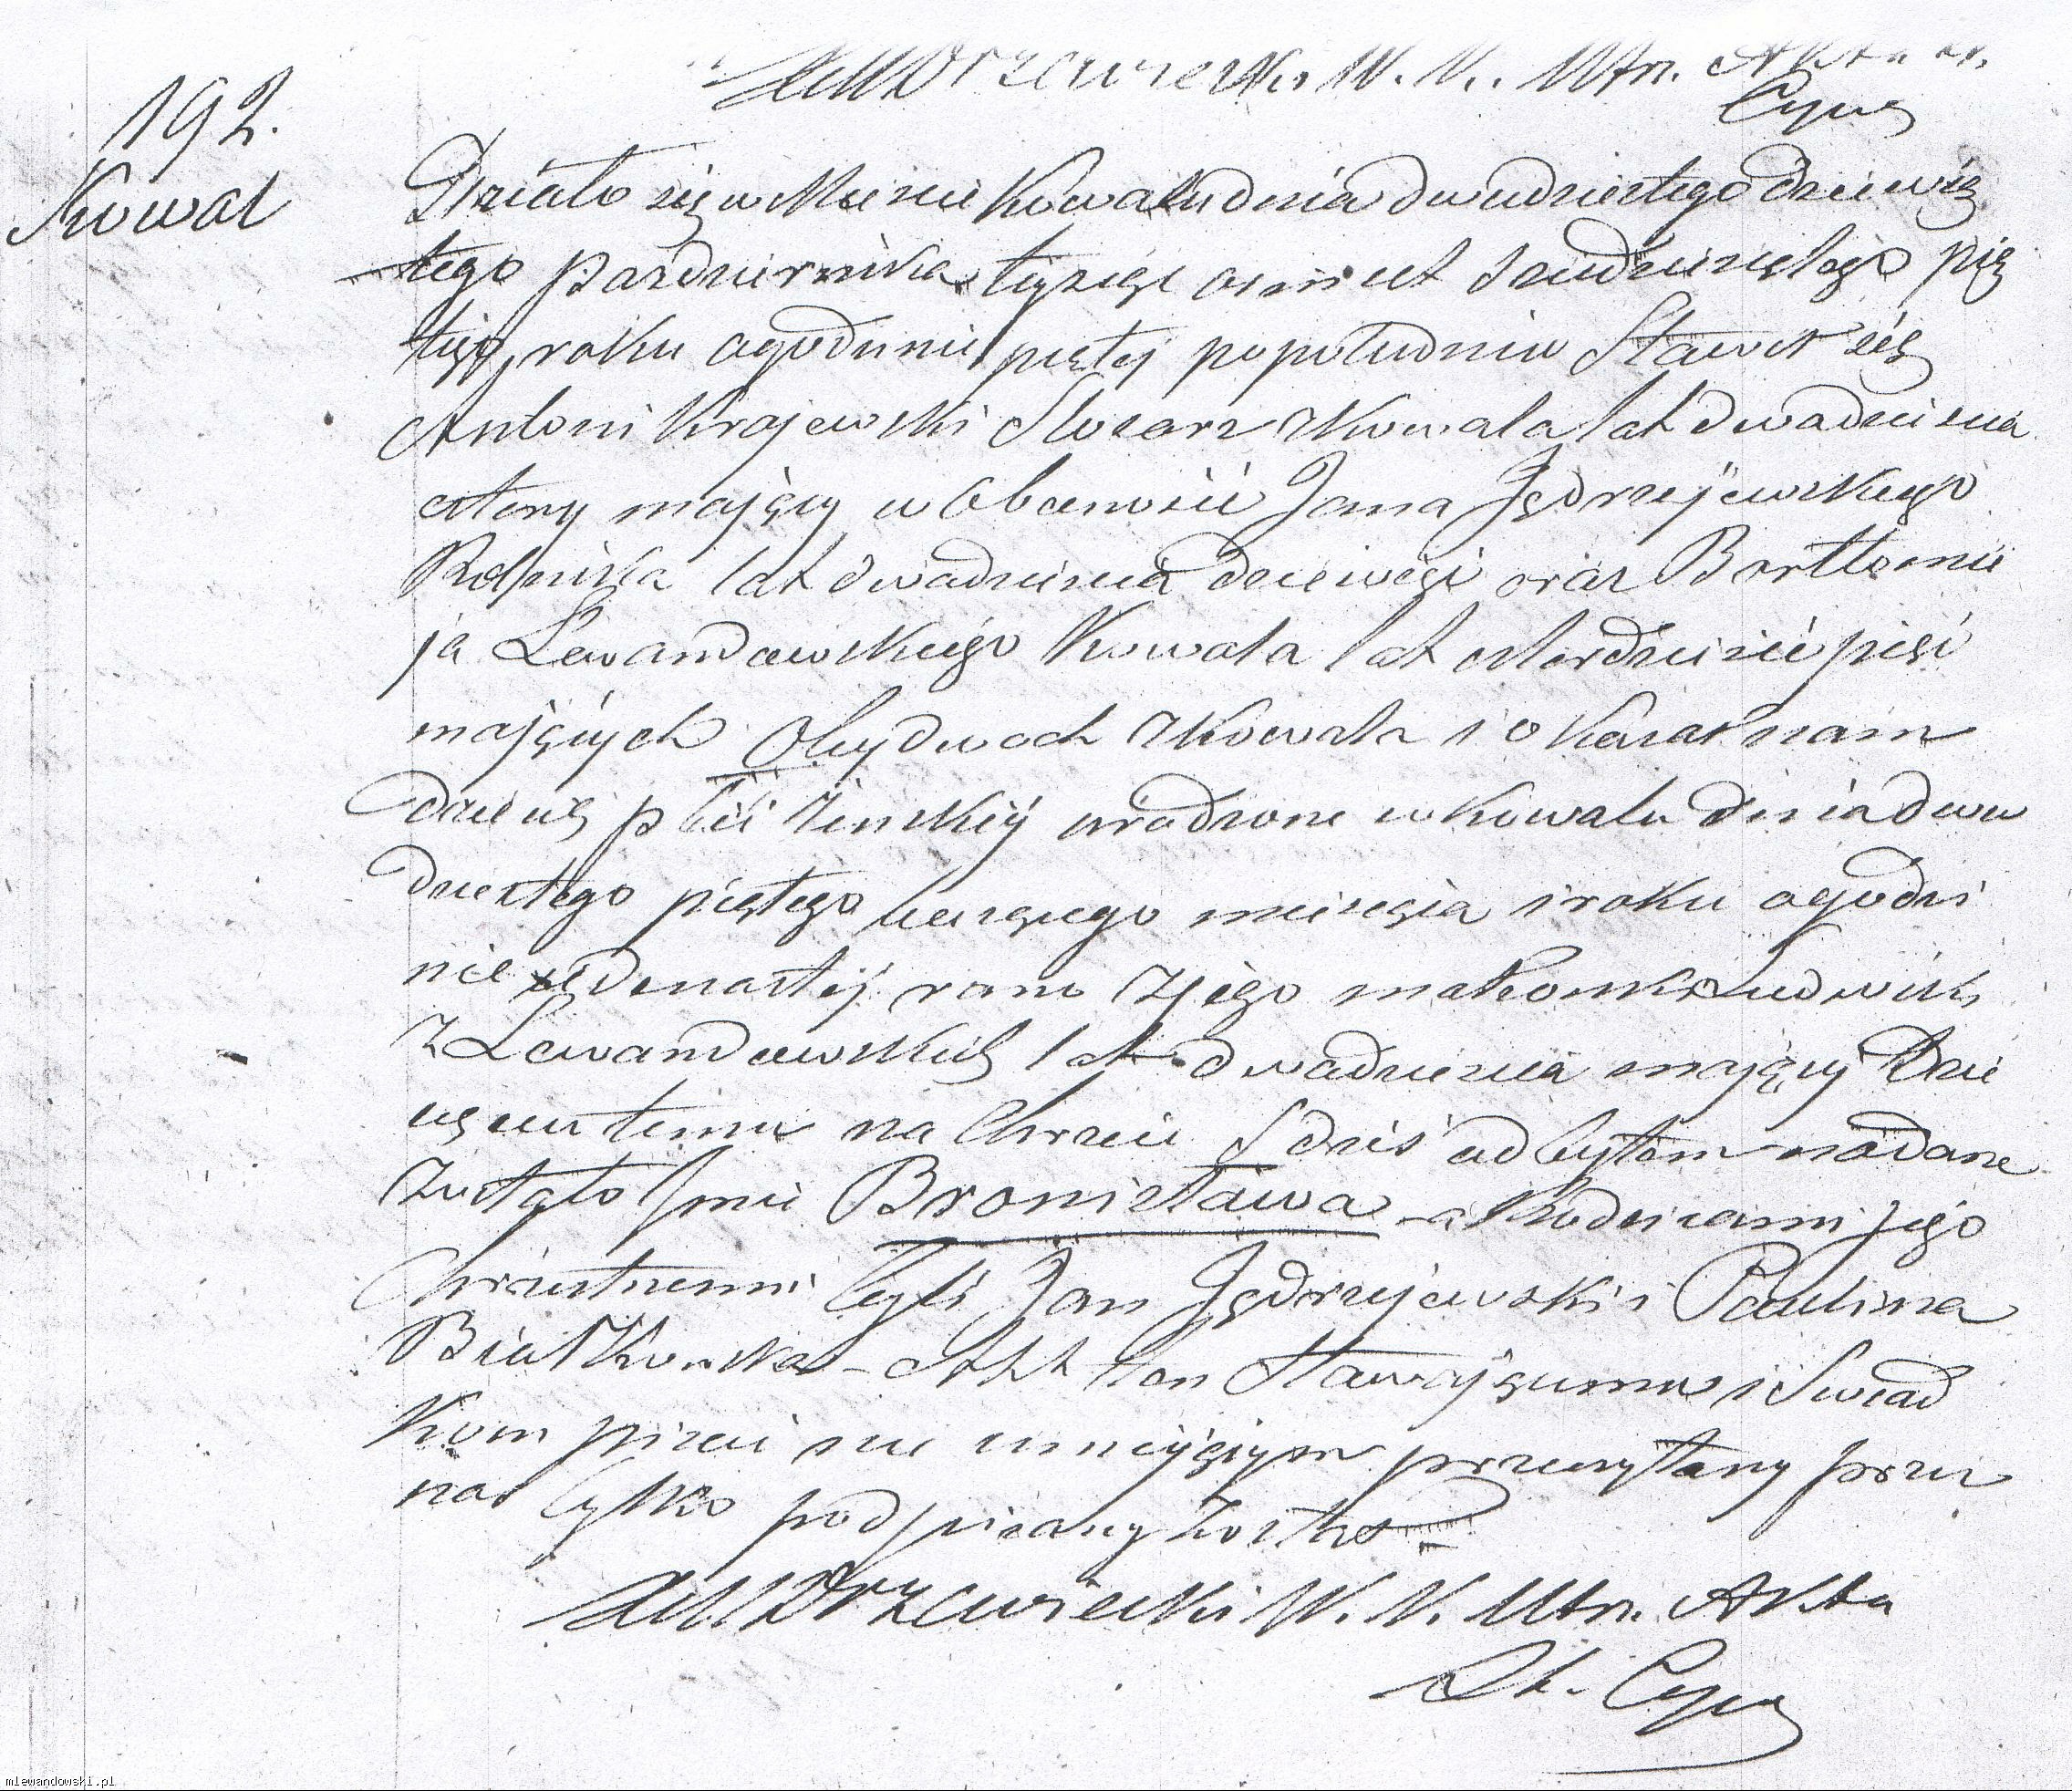 Drzewiecki W. K. Utrz. Akta
Cyw
192.
Kowal
Działo się w Miescie Kowalu dnia dwudziestego dziewią
tego pazdziernika tysiąc osmset szescdziesiątego pią
tego roku o godzinie piątej popołudniu Stawił się
Antoni Krajewski Slosarz z Kowala lat dwadziescia
cztery mający w obecności Jana Jędrzejewskiego
Rolnika lat dwadziescia dziewięć oraz Bartłomie
ja Lewandowskiego Kowala lat czterdziesci pięć
mających Obydwoch z Kowala i okazał nam
dziecię płci żeńskiej urodzone w Kowalu dnia dwu
dziestego piątego bieżącego miesiąca i roku o godzi
nie jedenastej rano z jego małżonki Ludwiki
z Lewandowskich lat dwadziescia mającej Dzie
cięciu temu na Chrzcie S dziś odbytem nadane
zostało Imie Bronisława a Rodzicami jego
Chrzestnemi byli Jan Jędrzejewski i Paulina
Białkowska – Akt ten stawającemu i Swiad
kom pisać nie umiejącym przeczytany przez
nas tylko podpisany został
Drzewiecki W. K. Utrz. Akta
St. Cyw
mlewandowski.pl